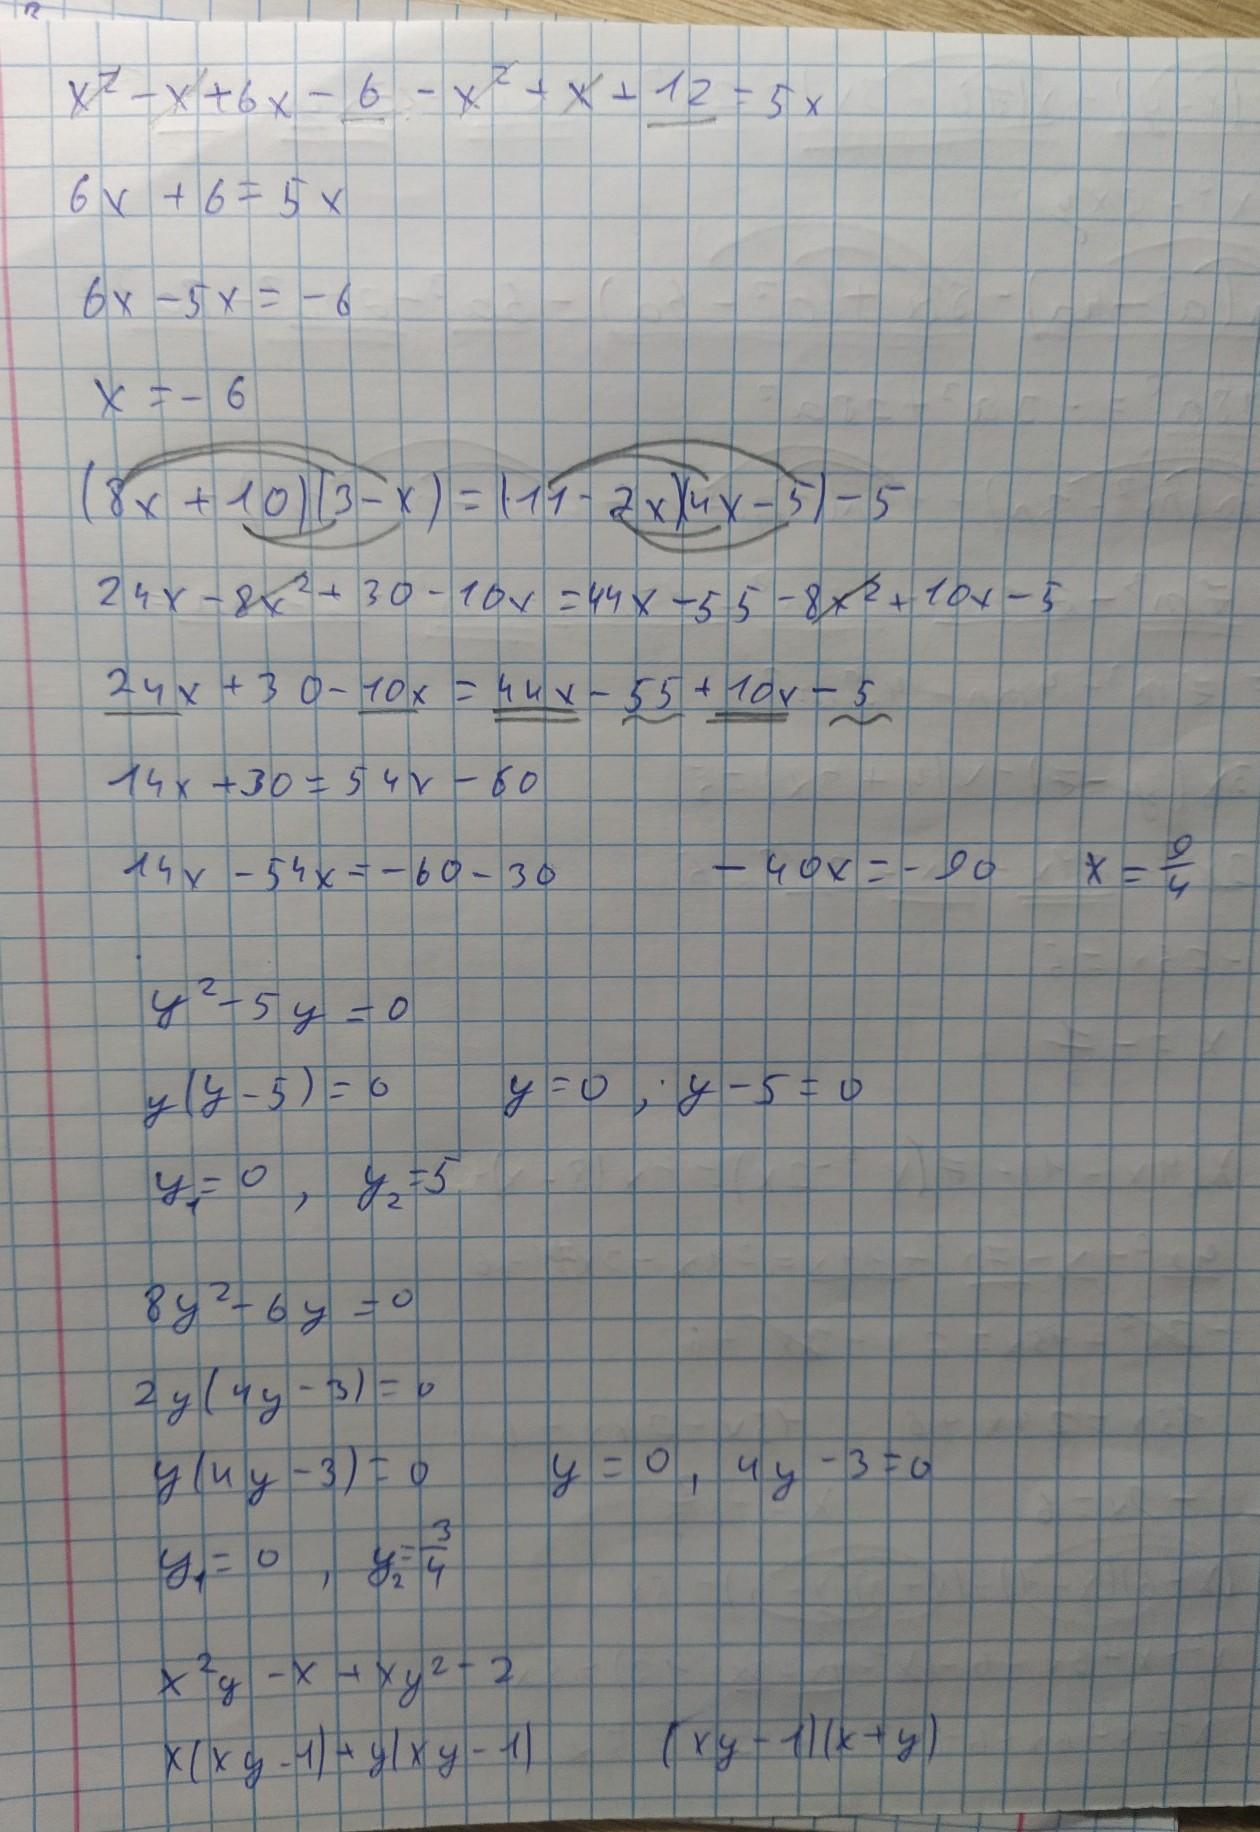 x² - x + 6x - 6 - x² + x + 12 = 5x
6x + 6 = 5x
6x - 5x = -6
x = -6
(8x + 10)(3 - x) = (11 - 2x)(4x - 5) - 5
24x - 8x² + 30 - 10x = 44x - 55 - 8x² + 10x - 5
24x + 30 - 10x = 44x - 55 + 10x - 5
14x + 30 = 54x - 60
14x - 54x = -60 - 30 -40x = -90 x = 9/4
y² - 5y = 0
y(y - 5) = 0 y = 0 ; y - 5 = 0
y₁ = 0 , y₂ = 5
8y² - 6y = 0
2y(4y - 3) = 0
y(4y - 3) = 0 y = 0 , 4y - 3 = 0
y₁ = 0 , y₂ = 3/4
x²y - x + xy² - 2
x(xy - 1) + y(xy - 1) (xy - 1)(x + y)